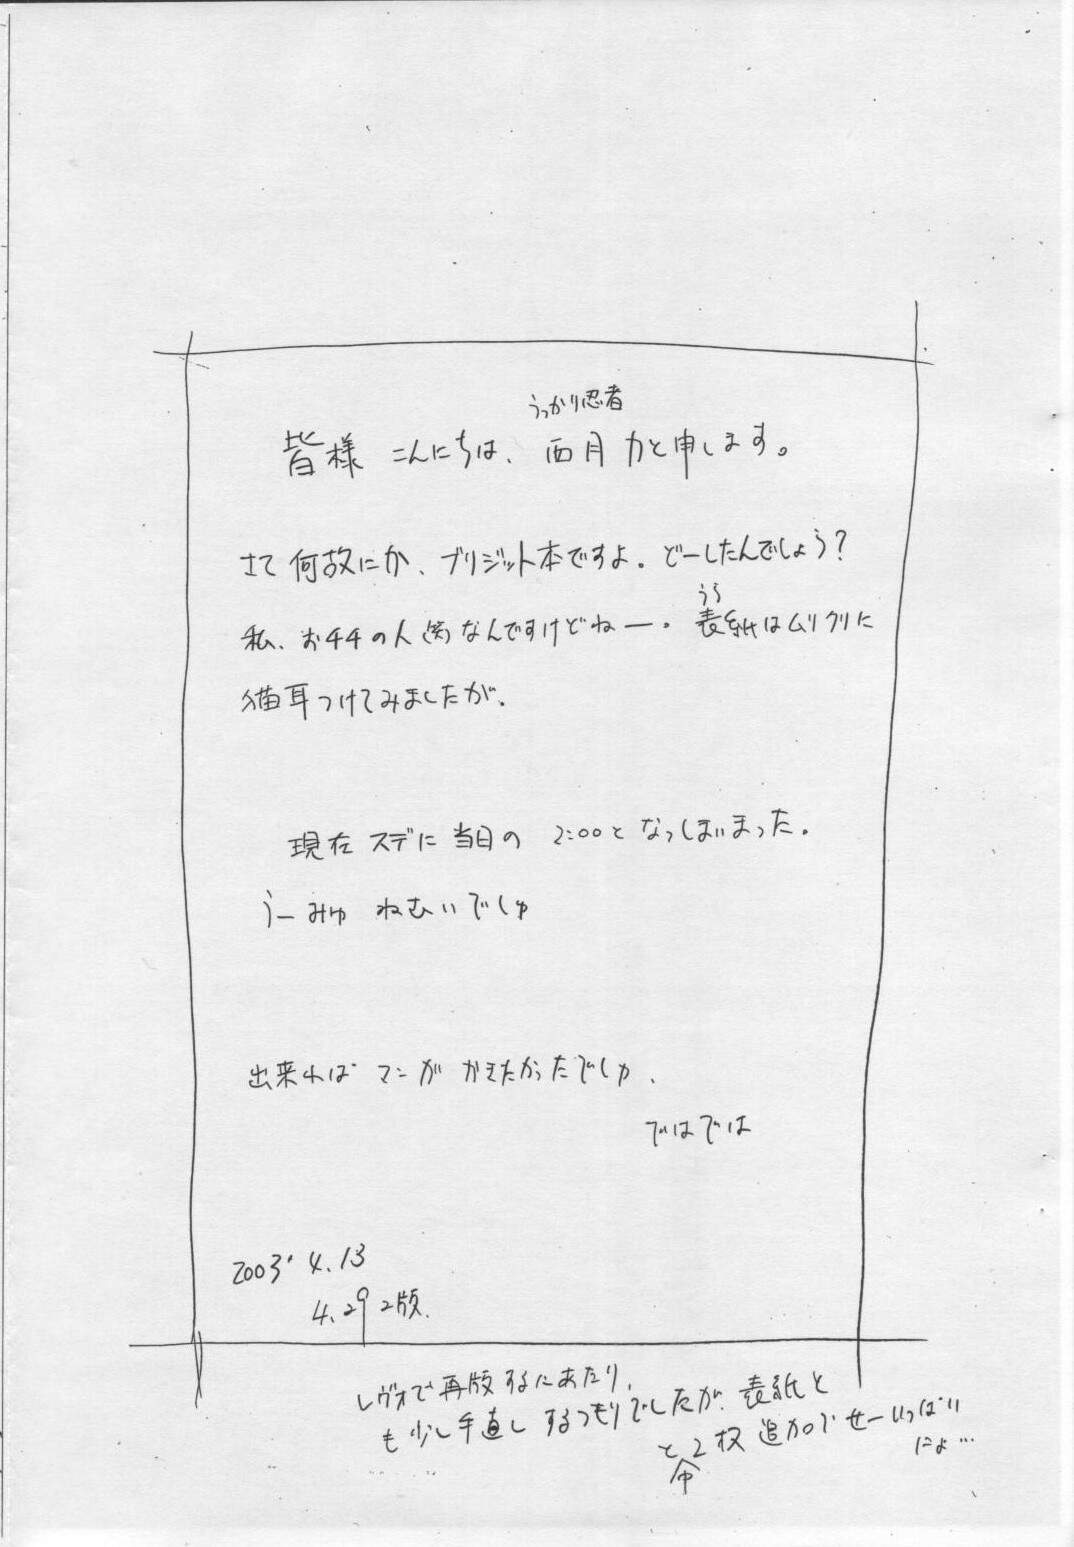 うっかり忍者
皆様 こんにちは、西月 力と申します。
さて 何故にか、ブリジット本ですよ。どーしたんでしょう?
うら
私、お千千の人なんですけどねー。表紙はムリクリに
猫耳つけてみましたが、
現在 スデに 当日の 2:00と なっしまいまった。
うーみゅ ねむいでしゅ
出来れば マンが かきたかったでしゅ、
ではでは
2003' 4.13
4.29 2版.
レヴォで再版するにあたり、
も少し手直しするつもりでしたが、表紙と
と2枚 追加で せーいっぱい
中
にょ…